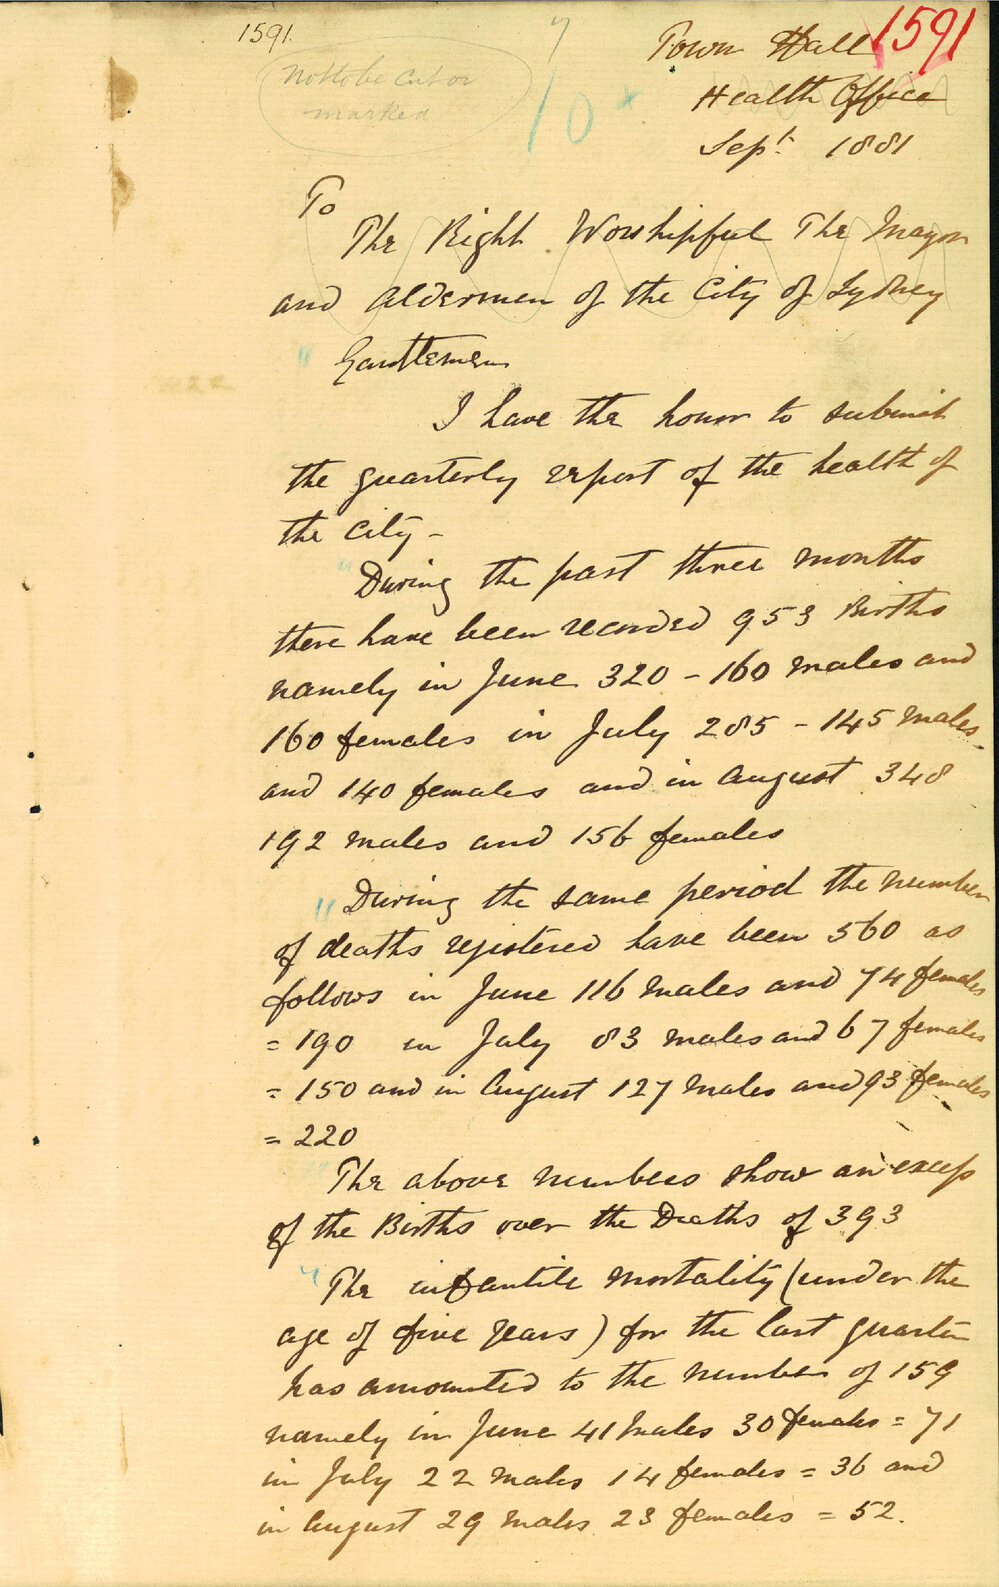 1591.
1591
Not to be cut or
marked
10
Town Hall
Health Office
Sept. 1881
To
The Right Worshipful The Mayor
and Aldermen of the City of Sydney
Gentlemen
I have the honor to submit
the quarterly report of the health of
the City -
During the past three months
there have been recorded 953 Births
namely in June 320 - 160 males and
160 females in July 285 - 145 males
and 140 females and in August 348
192 males and 156 females
During the same period the number
of deaths registered have been 560 as
follows in June 116 males and 74 females
= 190 in July 83 males and 67 females
= 150 and in August 127 males and 93 females
= 220
The above numbers show an excess
of the Births over the Deaths of 393
The infantile mortality (under the
age of five years) for the last quarter
has amounted to the number of 159
namely in June 41 males 30 females = 71
in July 22 males 14 females = 36 and
in August 29 males 23 females = 52.